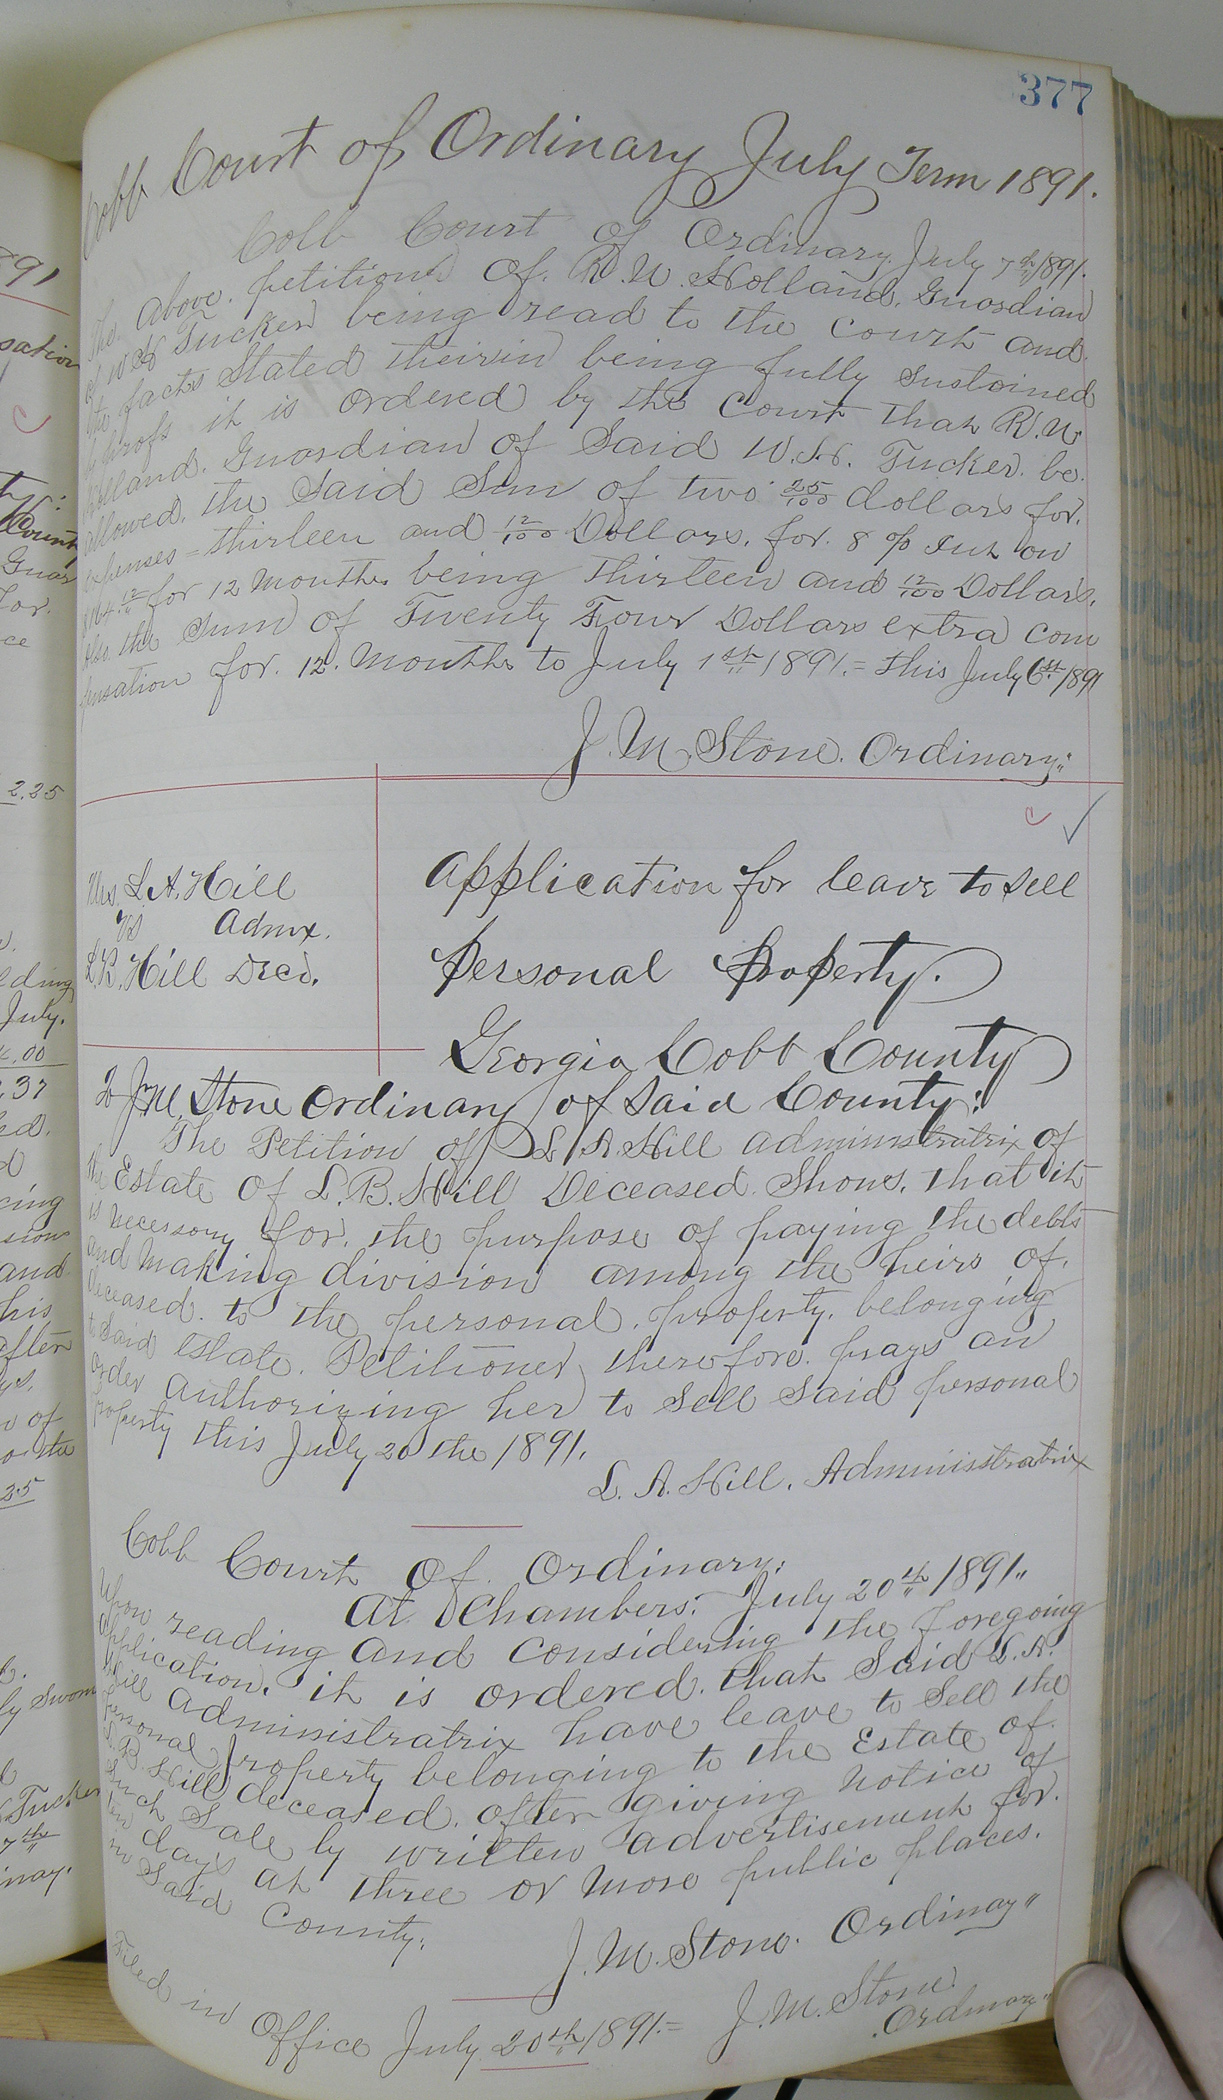 377
Cobb Court of Ordinary July Term 1891.
Cobb Court of Ordinary July 7th 1891.
The above petition of R. W. Holland, Guardian
of W H Tucker being read to the Court and
the facts Stated therein being fully Sustained
by profs it is ordered by the Court that R. W.
Holland, Guardian of Said W. H. Tucker be
allowed, the Said Sum of two 25/100 dollars for
expenses = thirteen and 12/100 Dollars, for 8 % Int on
$164 12/100 for 12 Months being Thirteen and 12/100 Dollars.
also the Sum of Twenty Four Dollars extra com
pensation for 12 Months to July 1st 1891. = this July 6st 1891
J. M. Stone. Ordinary.
Mrs. L. A. Hill
vs Admx.
L. B. Hill Decd.
Application for leave to sell
Personal Property.
Georgia Cobb County
To J M, Stone Ordinary of Said County:
The Petition of L. A. Hill administratrix of
the Estate of L. B. Hill Deceased. Shows, that it
is necessary for the purpose of paying the debts
and Making division among the heirs of
deceased to the personal property belonging
to Said Estate. Petitioner therefore prays an
order Authorizing her to Sell Said personal
property this July 20 the 1891.
L. A. Hill. Administratrix
Cobb Court of Ordinary:
At Chambers: July 20th 1891.
Upon reading and Considering the foregoing
Application, it is ordered, that Said L. A.
Hill Administratrix have leave to Sell the
personal property belonging to the Estate of
L. B. Hill deceased, after giving notice of
Such Sale by written advertisement for
ten days at three or More public places.
in Said County.
J. M. Stone. Ordinary
Filed in Office July 20th 1891. = J. M. Stone
Ordinary
891
sation
County
Guar
For
ce
2.25
July.
4.00
.37
ed.
cing
sion
and
his
after
of
25
ly Sworn
Tucker
7th
inary.